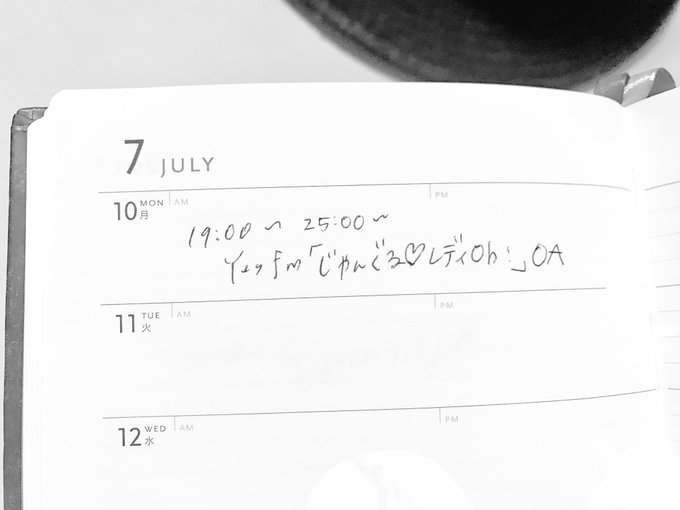 7 JULY
10 MON 月 AM PM
19:00〜 25:00〜
Yes fm「じゃんぐる♡レディOh!」OA
11 TUE 火 AM PM
12 WED 水 AM PM